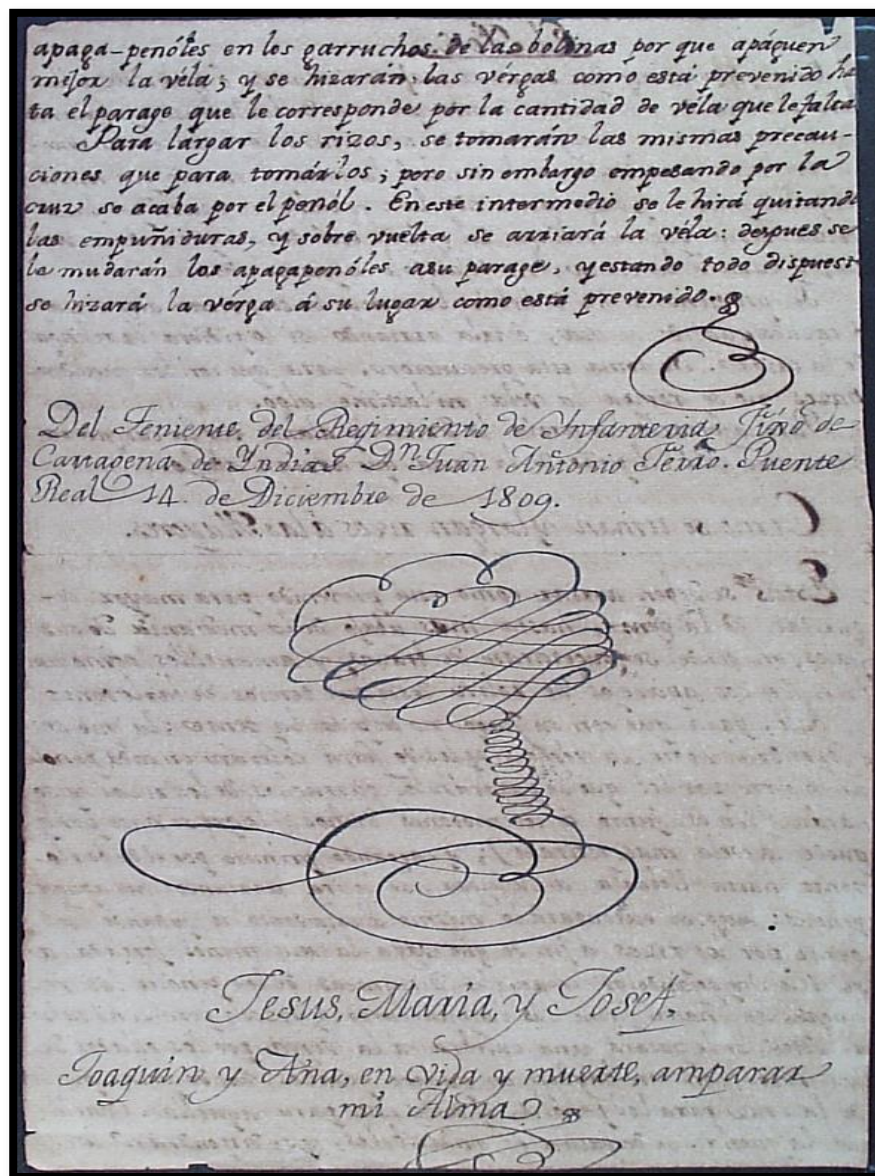 apaga-penóles en los garruchos de las bolinas por que apáguen
mejor la véla; y se hizarán las vérgas como está prevenido ha
ta el parage que le corresponde por la cantidad de véla que le falta
Para lárgar los rizos, se tomarán las mismas precau-
ciones que para tomárlos; pero sin embargo empesando por la
cruz se acaba por el penól. En este intermedio se le hirá quitando
las empuñiduras, y sobre vuelta se arriará la véla: despues se
le mudarán los apagapenóles asu parage, y estando todo dispuest
se hizará la vérga á su lugar como está prevenido.
Del Teniente del Regimiento de Ynfanteria de
Cartagena de Yndias Dn Juan Antonio Ferro. Puente
Real 14 de Diciembre de 1809.
Jesus, María, y Josef,
Joaquin y Aña, en vida y muerte, amparar
mi Alma